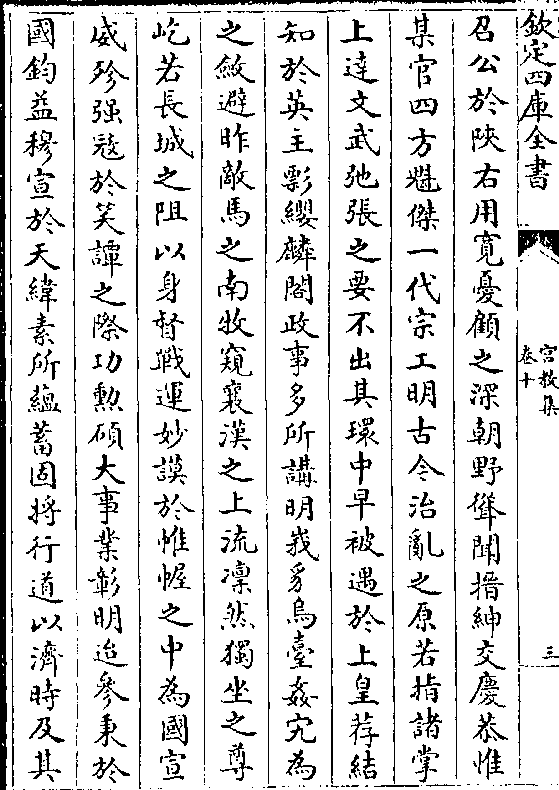 欽定四庫全書
宮教集
卷十
三
召公於陜右用寛憂顧之深朝野聳聞搢紳交慶恭惟
某官四方魁傑一代宗工明古今治亂之原若指諸掌
上達文武弛張之要不出其環中早被遇於上皇荐結
知於英主影纓麟閣政事多所講明峩豸烏臺姦宄為
之斂避昨敵馬之南牧窺襄漢之上流凛然獨坐之尊
屹若長城之阻以身督戰運妙謨於帷幄之中為國宣
威殄强冦於笑譚之際功勲碩大事業彰明迨參秉於
國鈞益穆宣於天緯素所蘊蓄固將行道以濟時及其